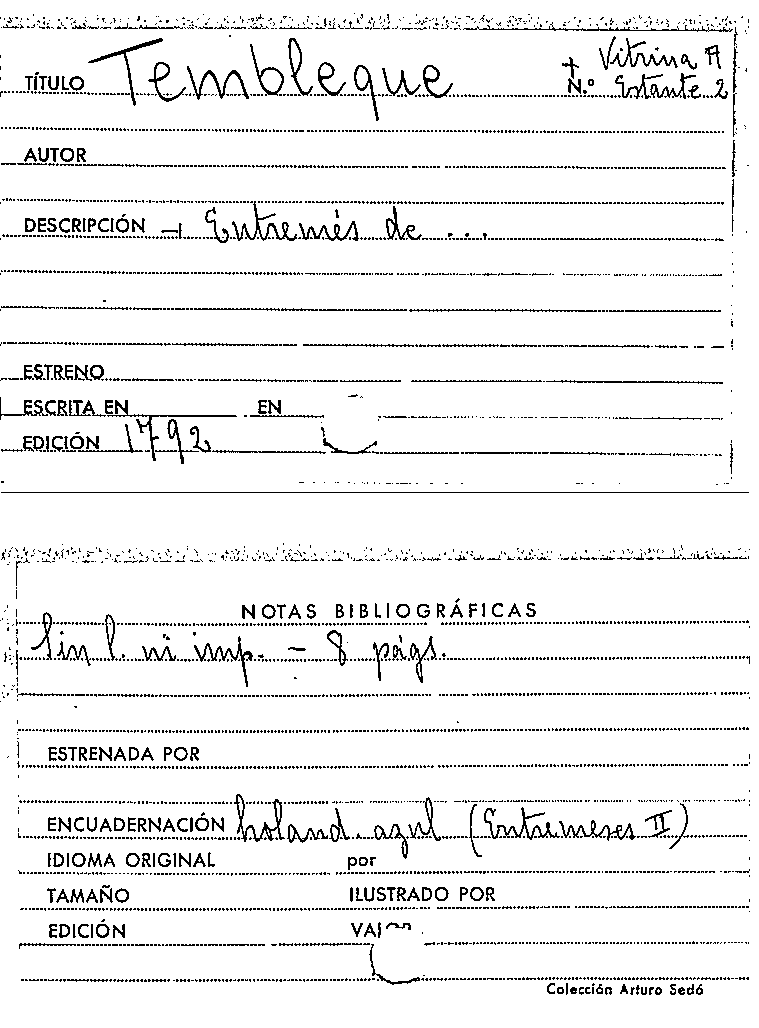 Vitrina A
TÍTULO Tembleque N.º Estante 2
AUTOR
DESCRIPCIÓN Entremés de ...
ESTRENO
ESCRITA EN EN
EDICIÓN 1792
NOTAS BIBLIOGRÁFICAS
Sin l. ni imp. - 8 págs.
ESTRENADA POR
ENCUADERNACIÓN holand. azul (Entremeses II)
IDIOMA ORIGINAL por
TAMAÑO ILUSTRADO POR
EDICIÓN
Colección Arturo Sedó